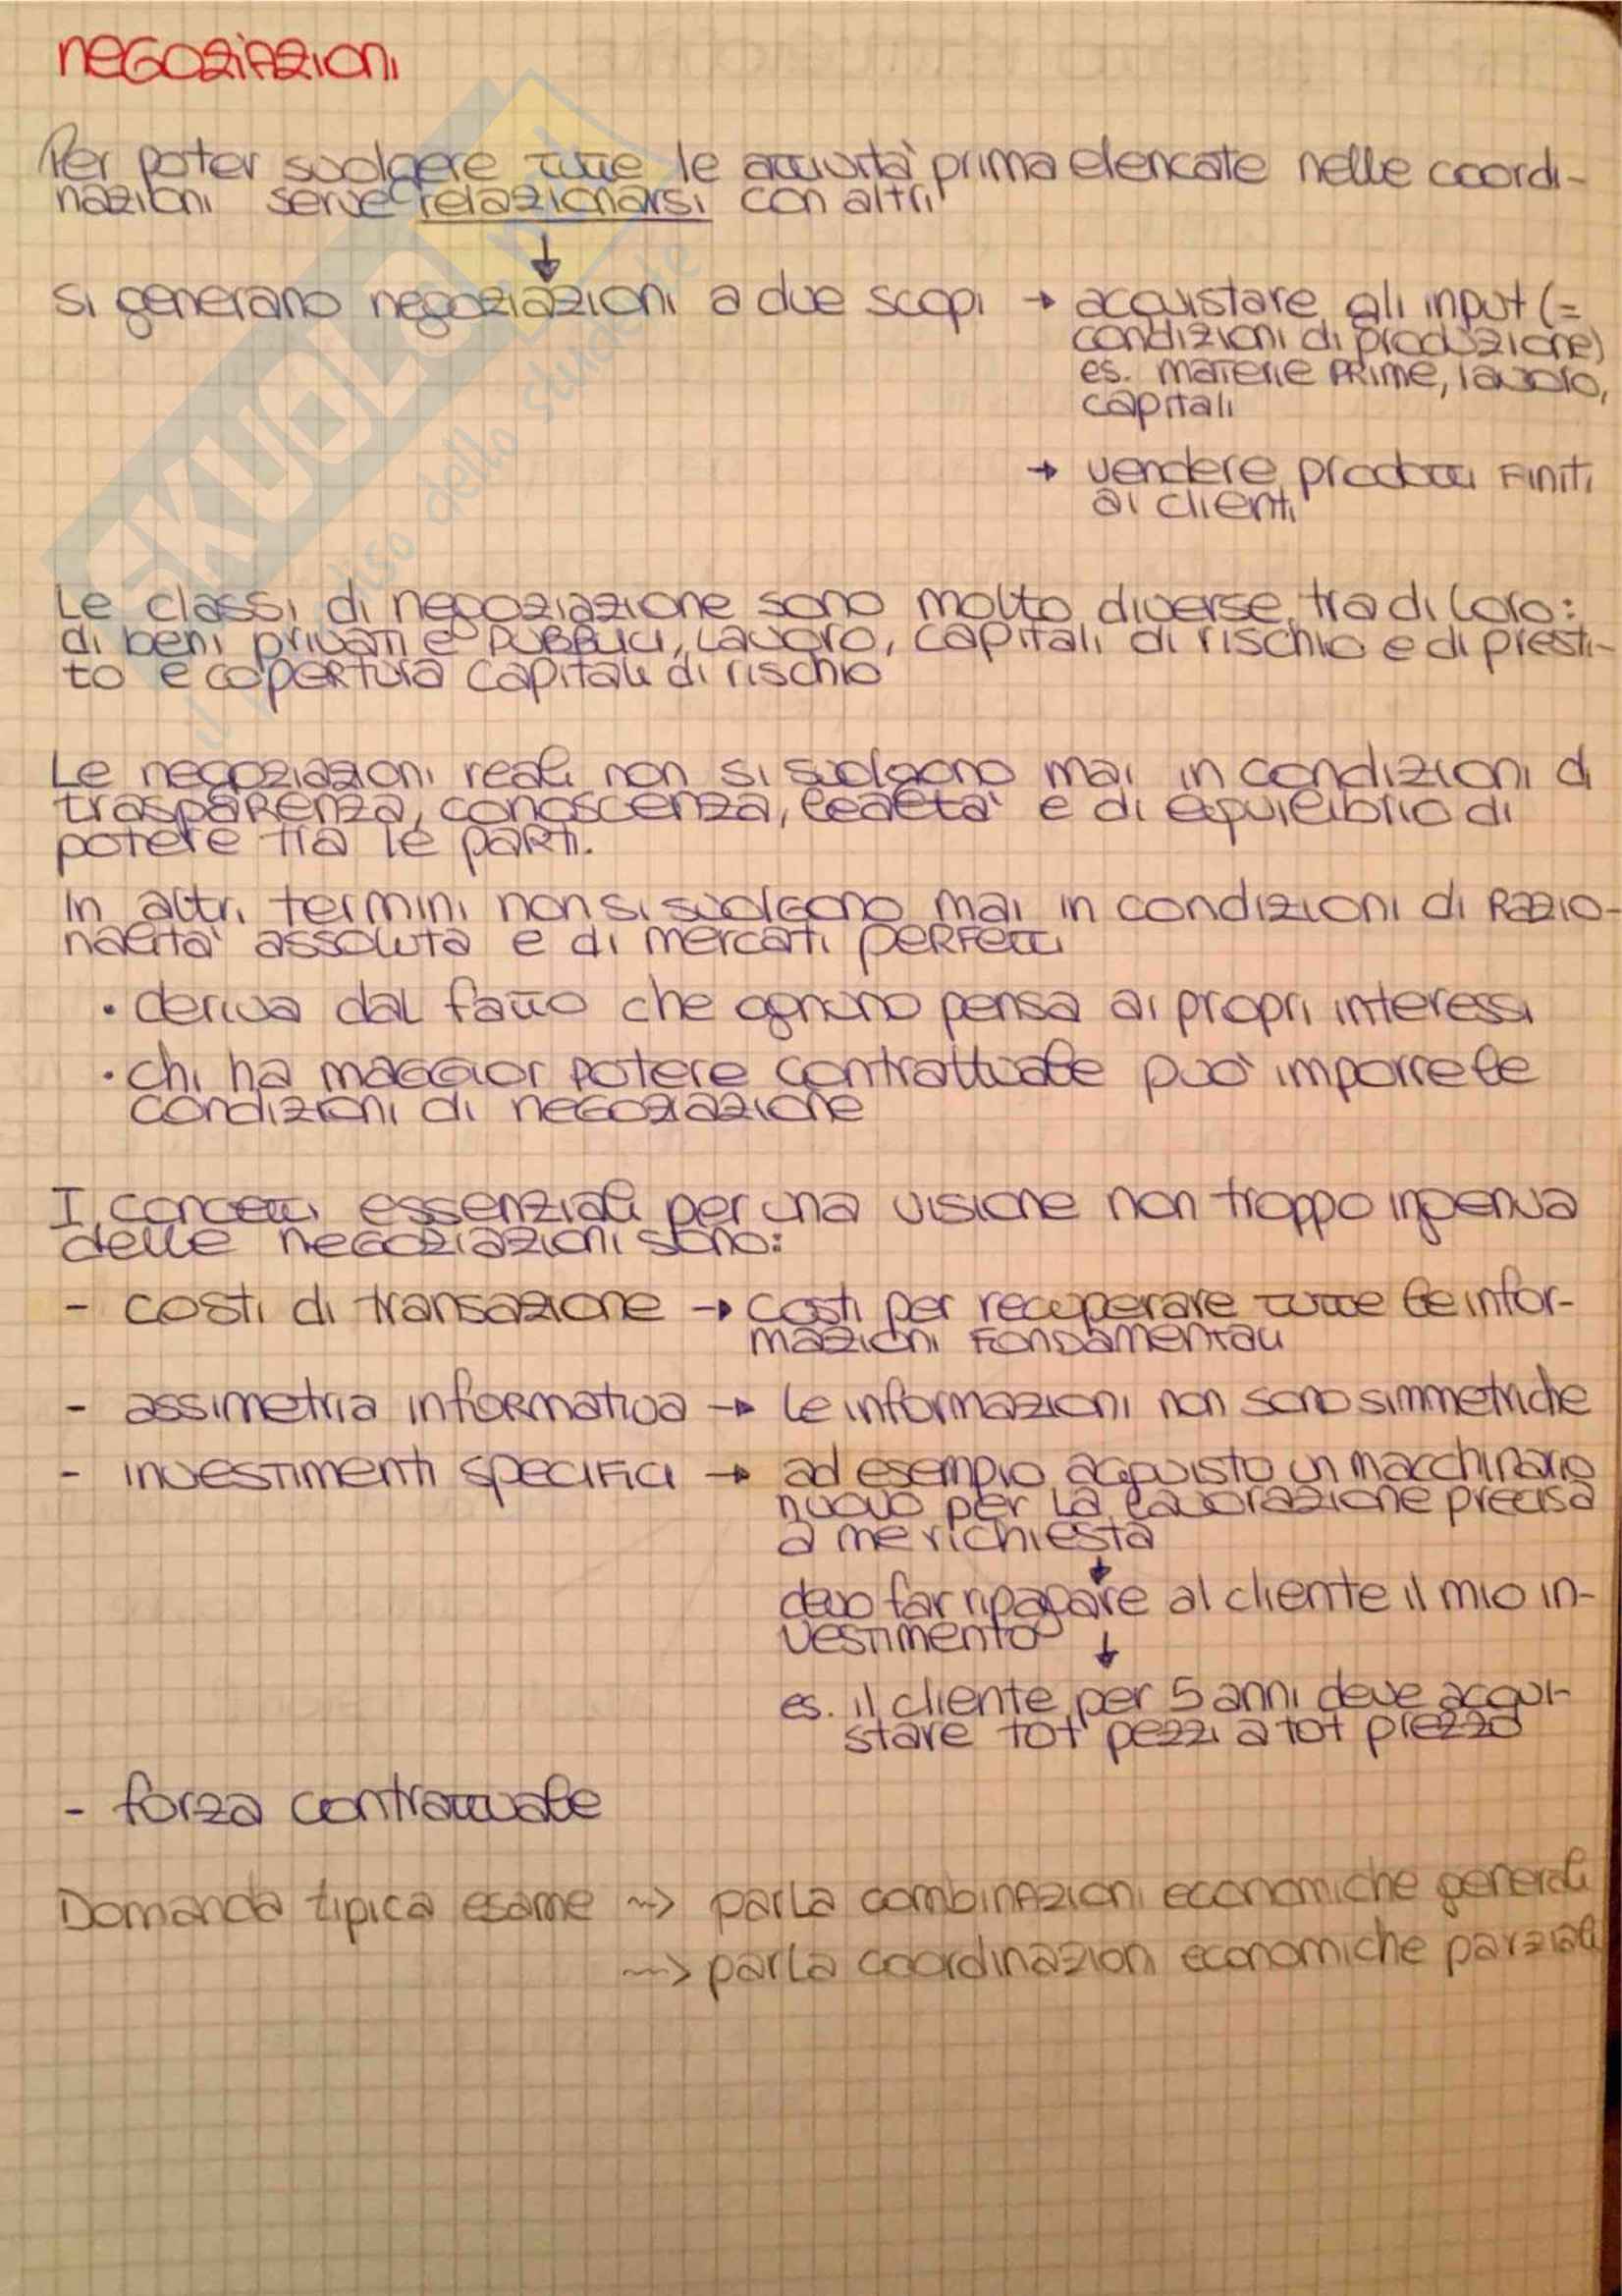 NEGOZIAZIONI
Per poter svolgere tutte le attività prima elencate nelle coordi-
nazioni serve relazionarsi con altri
↓
si generano negoziazioni a due scopi → acquistare gli input (=
condizioni di produzione)
es. materie prime, lavoro,
capitali
→ vendere prodotti finiti
ai clienti
Le classi di negoziazione sono molto diverse tra di loro:
di beni privati e pubblici, lavoro, capitali di rischio e di presti-
to e copertura capitale di rischio
Le negoziazioni reali non si svolgono mai in condizioni di
trasparenza, conoscenza, lealtà e di equilibrio di
potere tra le parti.
In altri termini non si svolgono mai in condizioni di razio-
nalità assoluta e di mercati perfetti
• deriva dal fatto che ognuno pensa ai propri interessi
• chi ha maggior potere contrattuale può imporre le
condizioni di negoziazione
I concetti essenziali per una visione non troppo ingenua
delle negoziazioni sono:
- costi di transazione → costi per recuperare tutte le infor-
mazioni fondamentali
- assimetria informativa → le informazioni non sono simmetriche
- investimenti specifici → ad esempio acquisto un macchinario
nuovo per la lavorazione precisa
a me richiesta
↓
devo far ripagare al cliente il mio in-
vestimento
↓
es. il cliente per 5 anni deve acqui-
stare tot pezzi a tot prezzo
- forza contrattuale
Domanda tipica esame ~> parla combinazioni economiche generali
~> parla coordinazioni economiche parziali
SKUOLA.net
il paradiso dello studente